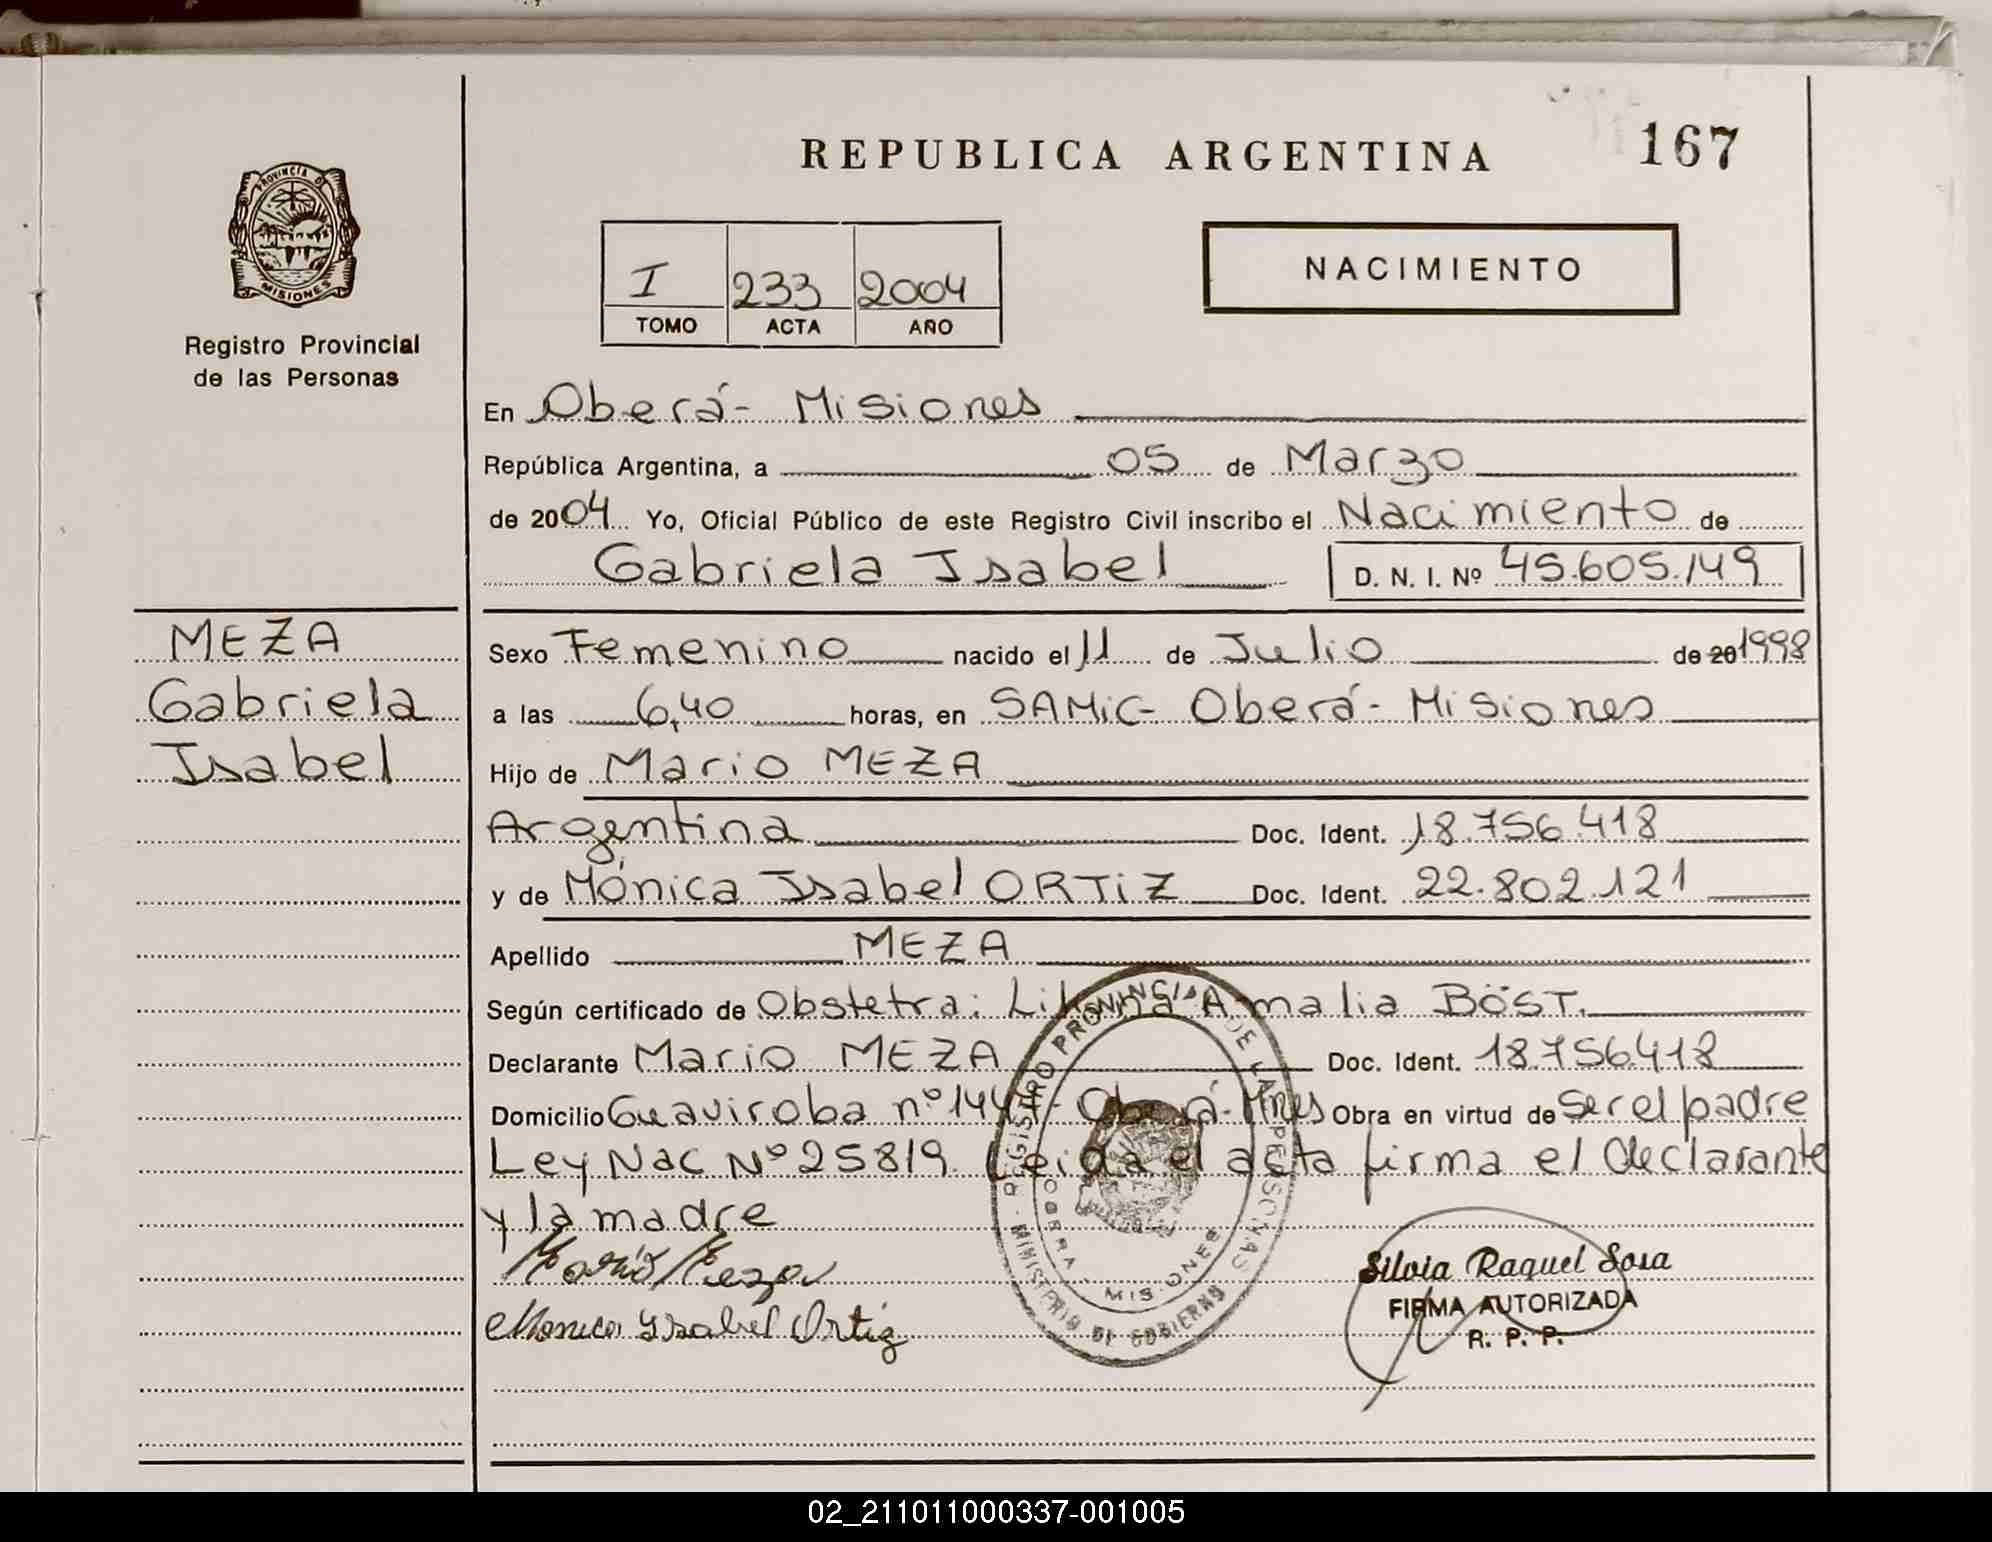 REPUBLICA ARGENTINA
167
PROVINCIA DE
MISIONES
Registro Provincial
de las Personas
I 233 2004
TOMO ACTA AÑO
NACIMIENTO
En Oberá - Misiones
República Argentina, a 05 de Marzo
de 2004 Yo, Oficial Público de este Registro Civil inscribo el Nacimiento de
Gabriela Isabel D. N. I. Nº 45.605.149
MEZA
Gabriela
Isabel
Sexo Femenino nacido el 11 de Julio de 20 1998
a las 6,40 horas, en SAMiC - Oberá - Misiones
Hijo de Mario MEZA
Argentina Doc. Ident. 18.756.418
y de Mónica Isabel ORTiZ Doc. Ident. 22.802.121
Apellido MEZA
Según certificado de Obstetra: Liliana Amalia BÖST.
Declarante Mario MEZA Doc. Ident. 18.756.418
Domicilio Guaviroba nº - Oberá - Mnes Obra en virtud de Ser el padre
Ley Nac Nº 25819. Leida el acta firma el declarante
y la madre
Mario Meza
Monica Ysabel Ortiz
REGISTRO PROVINCIAL DE LAS PERSONAS
MINISTERIO DE GOBIERNO
OBERA - MISIONES
Silvia Raquel Sosa
FIRMA AUTORIZADA
R. P. P.
02_211011000337-001005